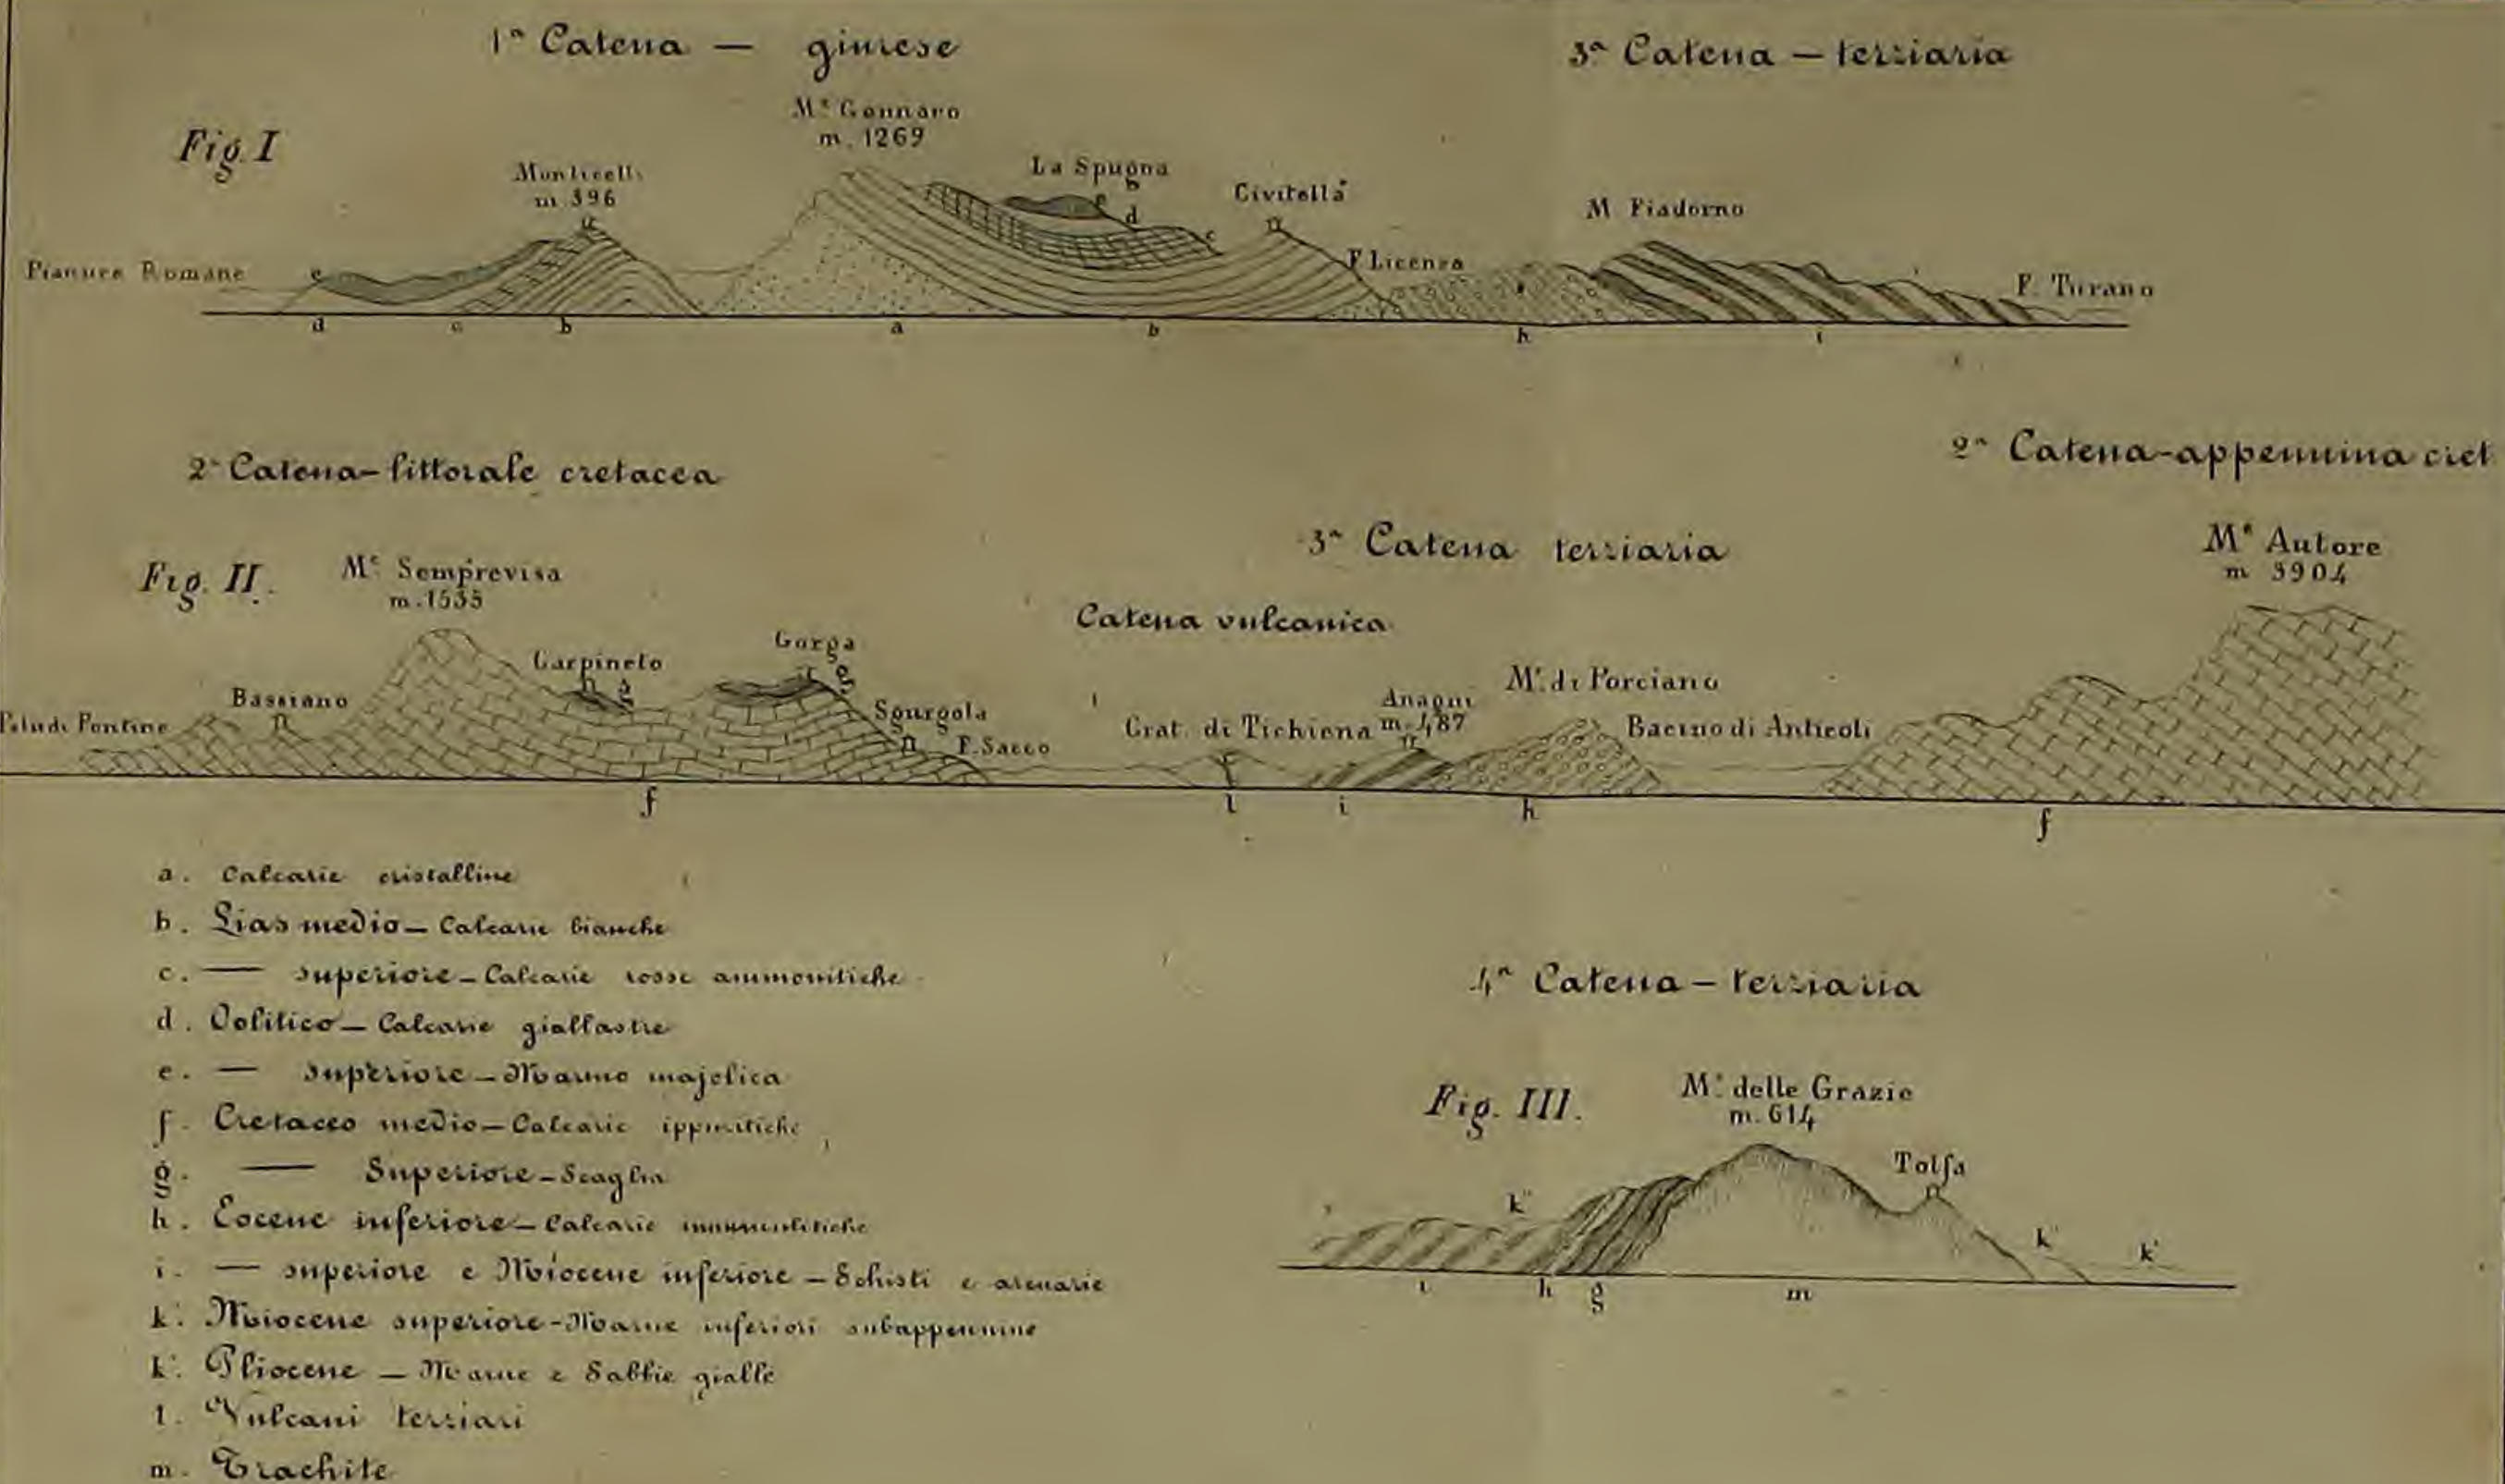 1ª Catena — giurese
3ª Catena — terziaria
Fig. I
Mᵉ Gennaro
m. 1269
Monticelli
m. 396
La Spugna
Civitella
M. Fiadorno
Pianure Romane
F. Licenza
F. Turano
e
e
d
c
d
c
b
a
b
h
i
2ª Catena-littorale cretacea
2ª Catena-appennina cret
3ª Catena terziaria
Fig. II.
Mᵉ Semprevisa
m. 1535
Mᵉ Autore
m 3904
Catena vulcanica
Gorga
Carpineto
Mᵉ di Porciano
Bassiano
Anagni
m. 487
Sgurgola
Paludi Pontine
Crat. di Tichiena
Bacino di Anticoli
F. Sacco
h
g
g
h
f
l
i
h
f
a. Calcarie cristalline
b. Lias medio — Calcarie bianche
c. — superiore — Calcarie rosse ammonitiche
d. Oolitico — Calcarie giallastre
e. — superiore — Marmo majolica
f. Cretaceo medio — Calcarie ippuritiche
g. — Superiore — Scaglia
h. Eocene inferiore — Calcarie nummulitiche
i. — superiore e Miocene inferiore — Schisti e arenarie
k'. Miocene superiore - Marne inferiori subappennine
k". Pliocene — Marne e Sabbie gialle
l. Vulcani terziari
m. Trachite
4ª Catena — terziaria
Fig. III.
Mᵉ delle Grazie
m. 614
Tolfa
k"
k"
k'
i
h
g
m